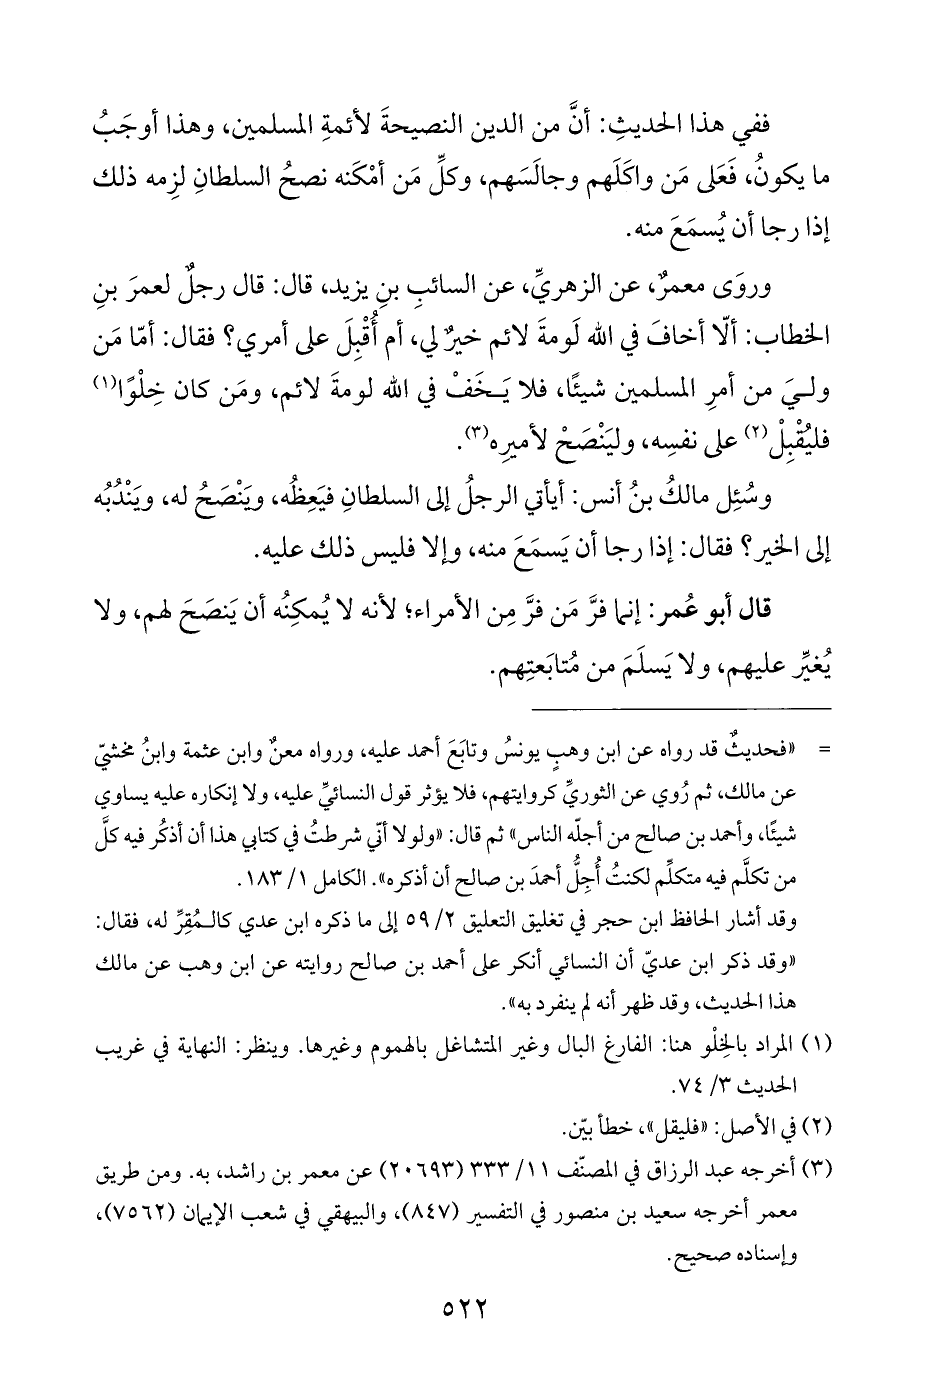 ففي هذا الحديثِ: أنَّ من الدين النصيحةَ لأئمةِ المسلمين، وهذا أوجَبُ
ما يكونُ، فَعَلى مَن واكَلَهم وجالَسَهم، وكلِّ مَن أمْكَنه نصحُ السلطانِ لزِمه ذلك
إذا رجا أن يُسمَعَ منه.
وروَى معمرٌ، عن الزهريِّ، عن السائبِ بنِ يزيد، قال: قال رجلٌ لعمرَ بنِ
الخطاب: ألّا أخافَ في الله لَومةَ لائم خيرٌ لي، أم أُقْبِلَ على أمري؟ فقال: أمّا مَن
وليَ من أمرِ المسلمين شيئًا، فلا يَخَفْ في الله لومةَ لائم، ومَن كان خِلْوًا(١)
فليُقْبِلْ(٢) على نفسِه، وليَنْصَحْ لأميرِه(٣).
وسُئِل مالكُ بنُ أنس: أيأتي الرجلُ إلى السلطانِ فيَعِظُه، ويَنْصَحُ له، ويَنْدُبُه
إلى الخير؟ فقال: إذا رجا أن يَسمَعَ منه، وإلا فليس ذلك عليه.
قال أبو عُمر: إنما فرَّ مَن فرَّ مِن الأمراء؛ لأنه لا يُمكِنُه أن يَنصَحَ لهم، ولا
يُغيِّر عليهم، ولا يَسلَمَ من مُتابَعتِهم.
= «فحديثٌ قد رواه عن ابن وهبٍ يونسُ وتابَعَ أحمد عليه، ورواه معنٌ وابن عثمة وابنُ مخشيّ
عن مالك، ثم رُوي عن الثوريِّ كروايتهم، فلا يؤثر قول النسائيِّ عليه، ولا إنكاره عليه يساوي
شيئًا، وأحمد بن صالح من أجلّه الناس» ثم قال: «ولولا أنّي شرطتُ في كتابي هذا أن أذكُر فيه كلَّ
من تكلَّم فيه متكلِّم لكنتُ أُجِلُّ أحمدَ بن صالح أن أذكره». الكامل ١/ ١٨٣.
وقد أشار الحافظ ابن حجر في تغليق التعليق ٢/ ٥٩ إلى ما ذكره ابن عدي كالمُقِرِّ له، فقال:
«وقد ذكر ابن عديّ أن النسائي أنكر على أحمد بن صالح روايته عن ابن وهب عن مالك
هذا الحديث، وقد ظهر أنه لم ينفرد به».
(١) المراد بالخِلْو هنا: الفارغ البال وغير المتشاغل بالهموم وغيرها. وينظر: النهاية في غريب
الحديث ٣/ ٧٤.
(٢) في الأصل: «فليقل»، خطأ بيّن.
(٣) أخرجه عبد الرزاق في المصنّف ١١/ ٣٣٣ (٢٠٦٩٣) عن معمر بن راشد، به. ومن طريق
معمر أخرجه سعيد بن منصور في التفسير (٨٤٧)، والبيهقي في شعب الإيمان (٧٥٦٢)،
وإسناده صحيح.
٥٢٢